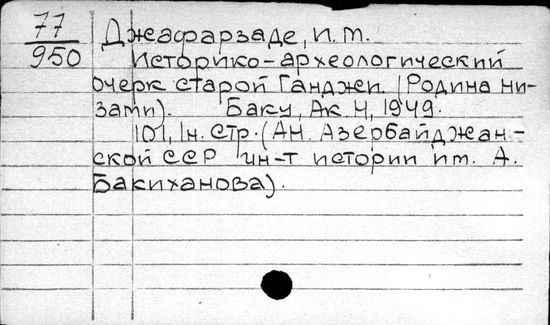 77
950
Джафарзаде, И. М.
Историко-археологический
очерк старой Ганджи. (Родина Ни-
зами). Баку, Ак. Н, 1949.
101, 1н. стр. (Ан. Азербайджан-
ской ССР ин-т истории им. А.
Бакиханова).